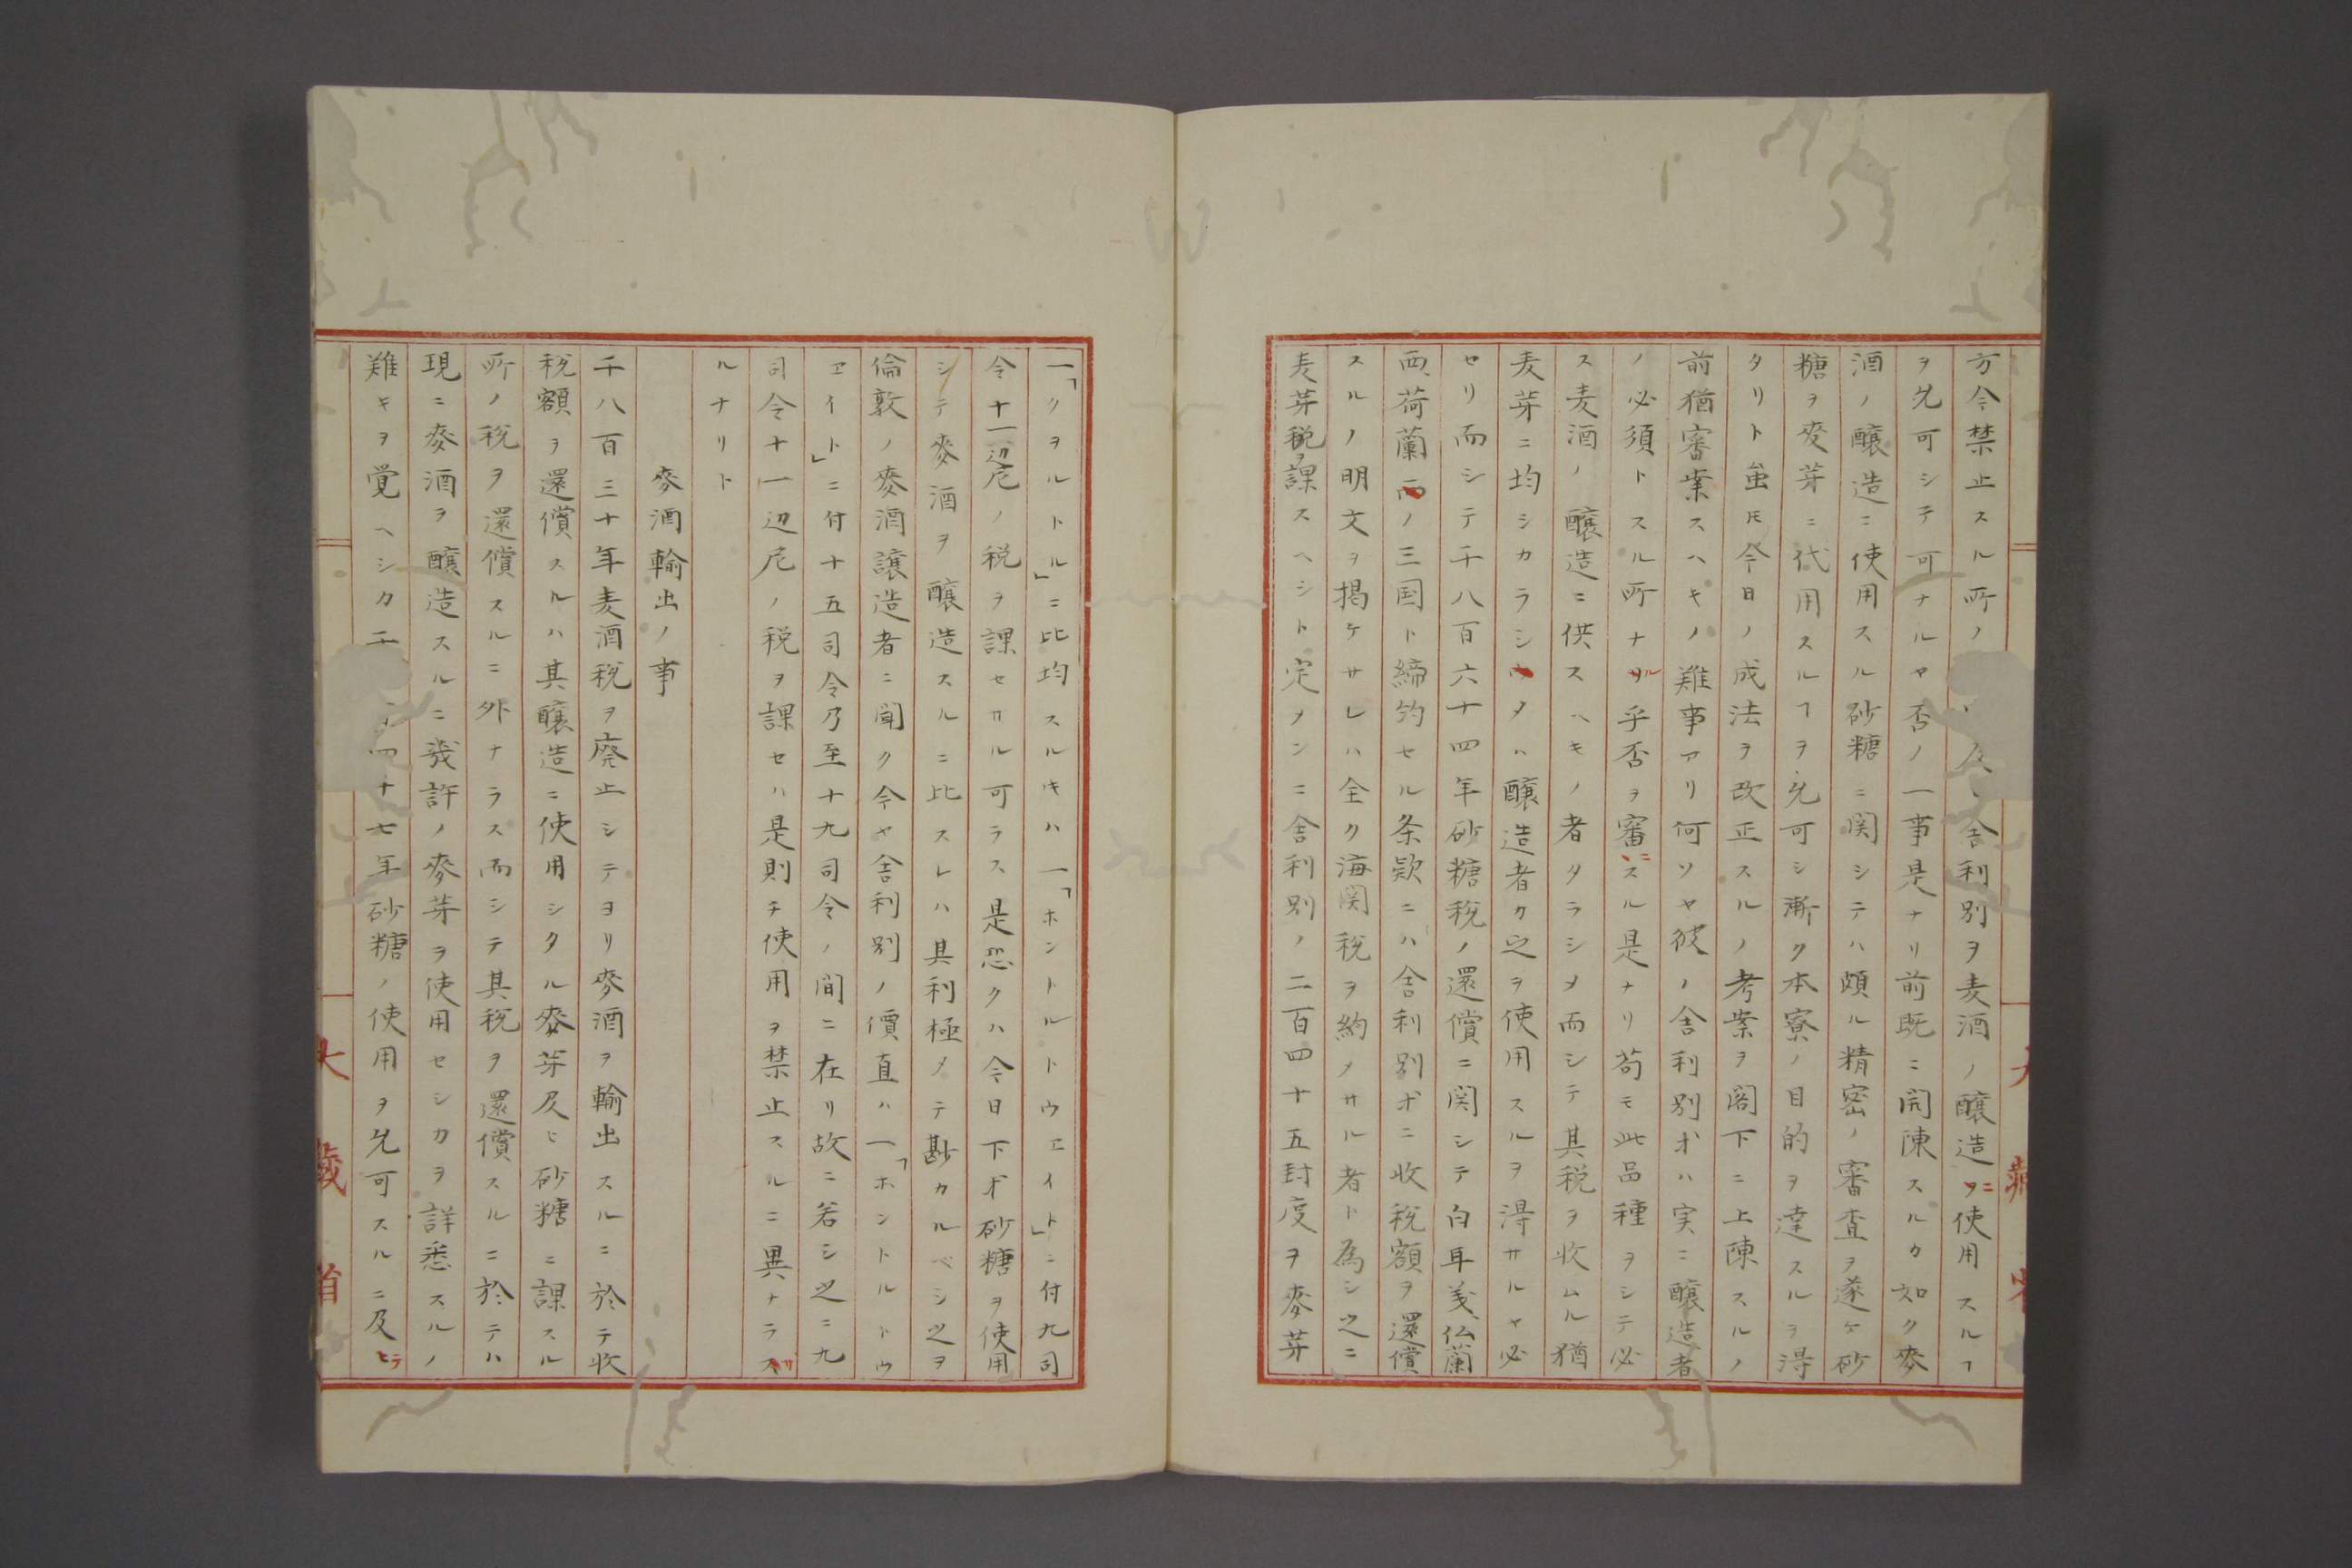 方今禁止スル所ノ舎利別ヲ麦酒ノ醸造ニ使用スルヿ
ヲ允可シテ可ナルヤ否ノ一事是ナリ前既ニ開陳スルカ如ク麥
酒ノ醸造ニ使用スル砂糖ニ関シテハ頗ル精密ノ審査ヲ遂ケ砂
糖ヲ麦芽ニ代用スルヿヲ允可シ漸ク本寮ノ目的ヲ達スルヲ得
タリト虽𪜈今日ノ成法ヲ改正スルノ考案ヲ閣下ニ上陳スルノ
前猶審案スヘキノ難事アリ何ソヤ彼ノ舎利別オハ実ニ醸造者
ノ必須トスル所ナル乎否ヲ審ニスル是ナリ苟モ此品種ヲシテ必
ス麦酒ノ醸造ニ供スヘキノ者タラシメ而シテ其税ヲ收ムル猶
麦芽ニ均シカラシメハ醸造者ク之ヲ使用スルヲ得サルヤ必
セリ而シテ千八百六十四年砂糖税ノ還償ニ関シテ白耳義仏蘭
西荷蘭ノ三国ト締約セル条欵ニハ舎利別オニ收税額ヲ還償
スルノ明文ヲ掲ケサレハ全ク海関税ヲ約メサル者ト為シ之ニ
麦芽税ヲ課スヘシト定メンニ舎利別ノ二百四十五封度ヲ麥芽
一「クヲルトル」ニ比均スルキハ一「ホントルトウエイト」ニ付九司
令十一辺尼ノ税ヲ課セサル可ラス是恐クハ今日下オ砂糖ヲ使用
シテ麥酒ヲ醸造スルニ比スレハ其利極メテ尠カルベシ之ヲ
倫敦ノ麥酒譲造者ニ聞ク今ヤ舎利別ノ價直ハ一「ホントルトウ
エイト」ニ付十五司令乃至十九司令ノ間ニ在リ故ニ若シ之ニ九
司令十一辺尼ノ税ヲ課セハ是則チ使用ヲ禁止スルニ異ナラサ
ルナリト
麥酒輸出ノ事
千八百三十年麦酒税ヲ廃止シテヨリ麥酒ヲ輸出スルニ於テ收
税額ヲ還償スルハ其醸造ニ使用シタル麥芽及ヒ砂糖ニ課スル
所ノ税ヲ還償スルニ外ナラス而シテ其税ヲ還償スルニ於テハ
現ニ麥酒ヲ醸造スルニ幾許ノ麥芽ヲ使用セシカヲ詳悉スルノ
難キヲ覚ヘシカ千四十七年砂糖ノ使用ヲ允可スルニ及ヒテ